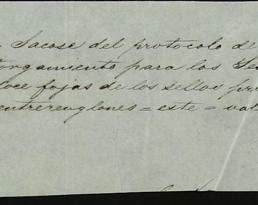 Sacose del protocolo de
torgamiento para los Se
oce fojas de los sellos pri
entrerenglones = este = val